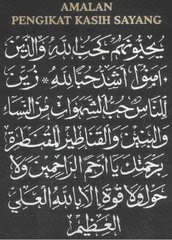 AMALAN
PENGIKAT KASIH SAYANG
يحبونهم كحب الله والذين
آمنوا أشد حبا لله * زين
للناس حب الشهوات من النساء
والبنين والقناطير المقنطرة
برحمتك يا أرحم الراحمين ولا
حول ولا قوة إلا بالله العلي
العظيم